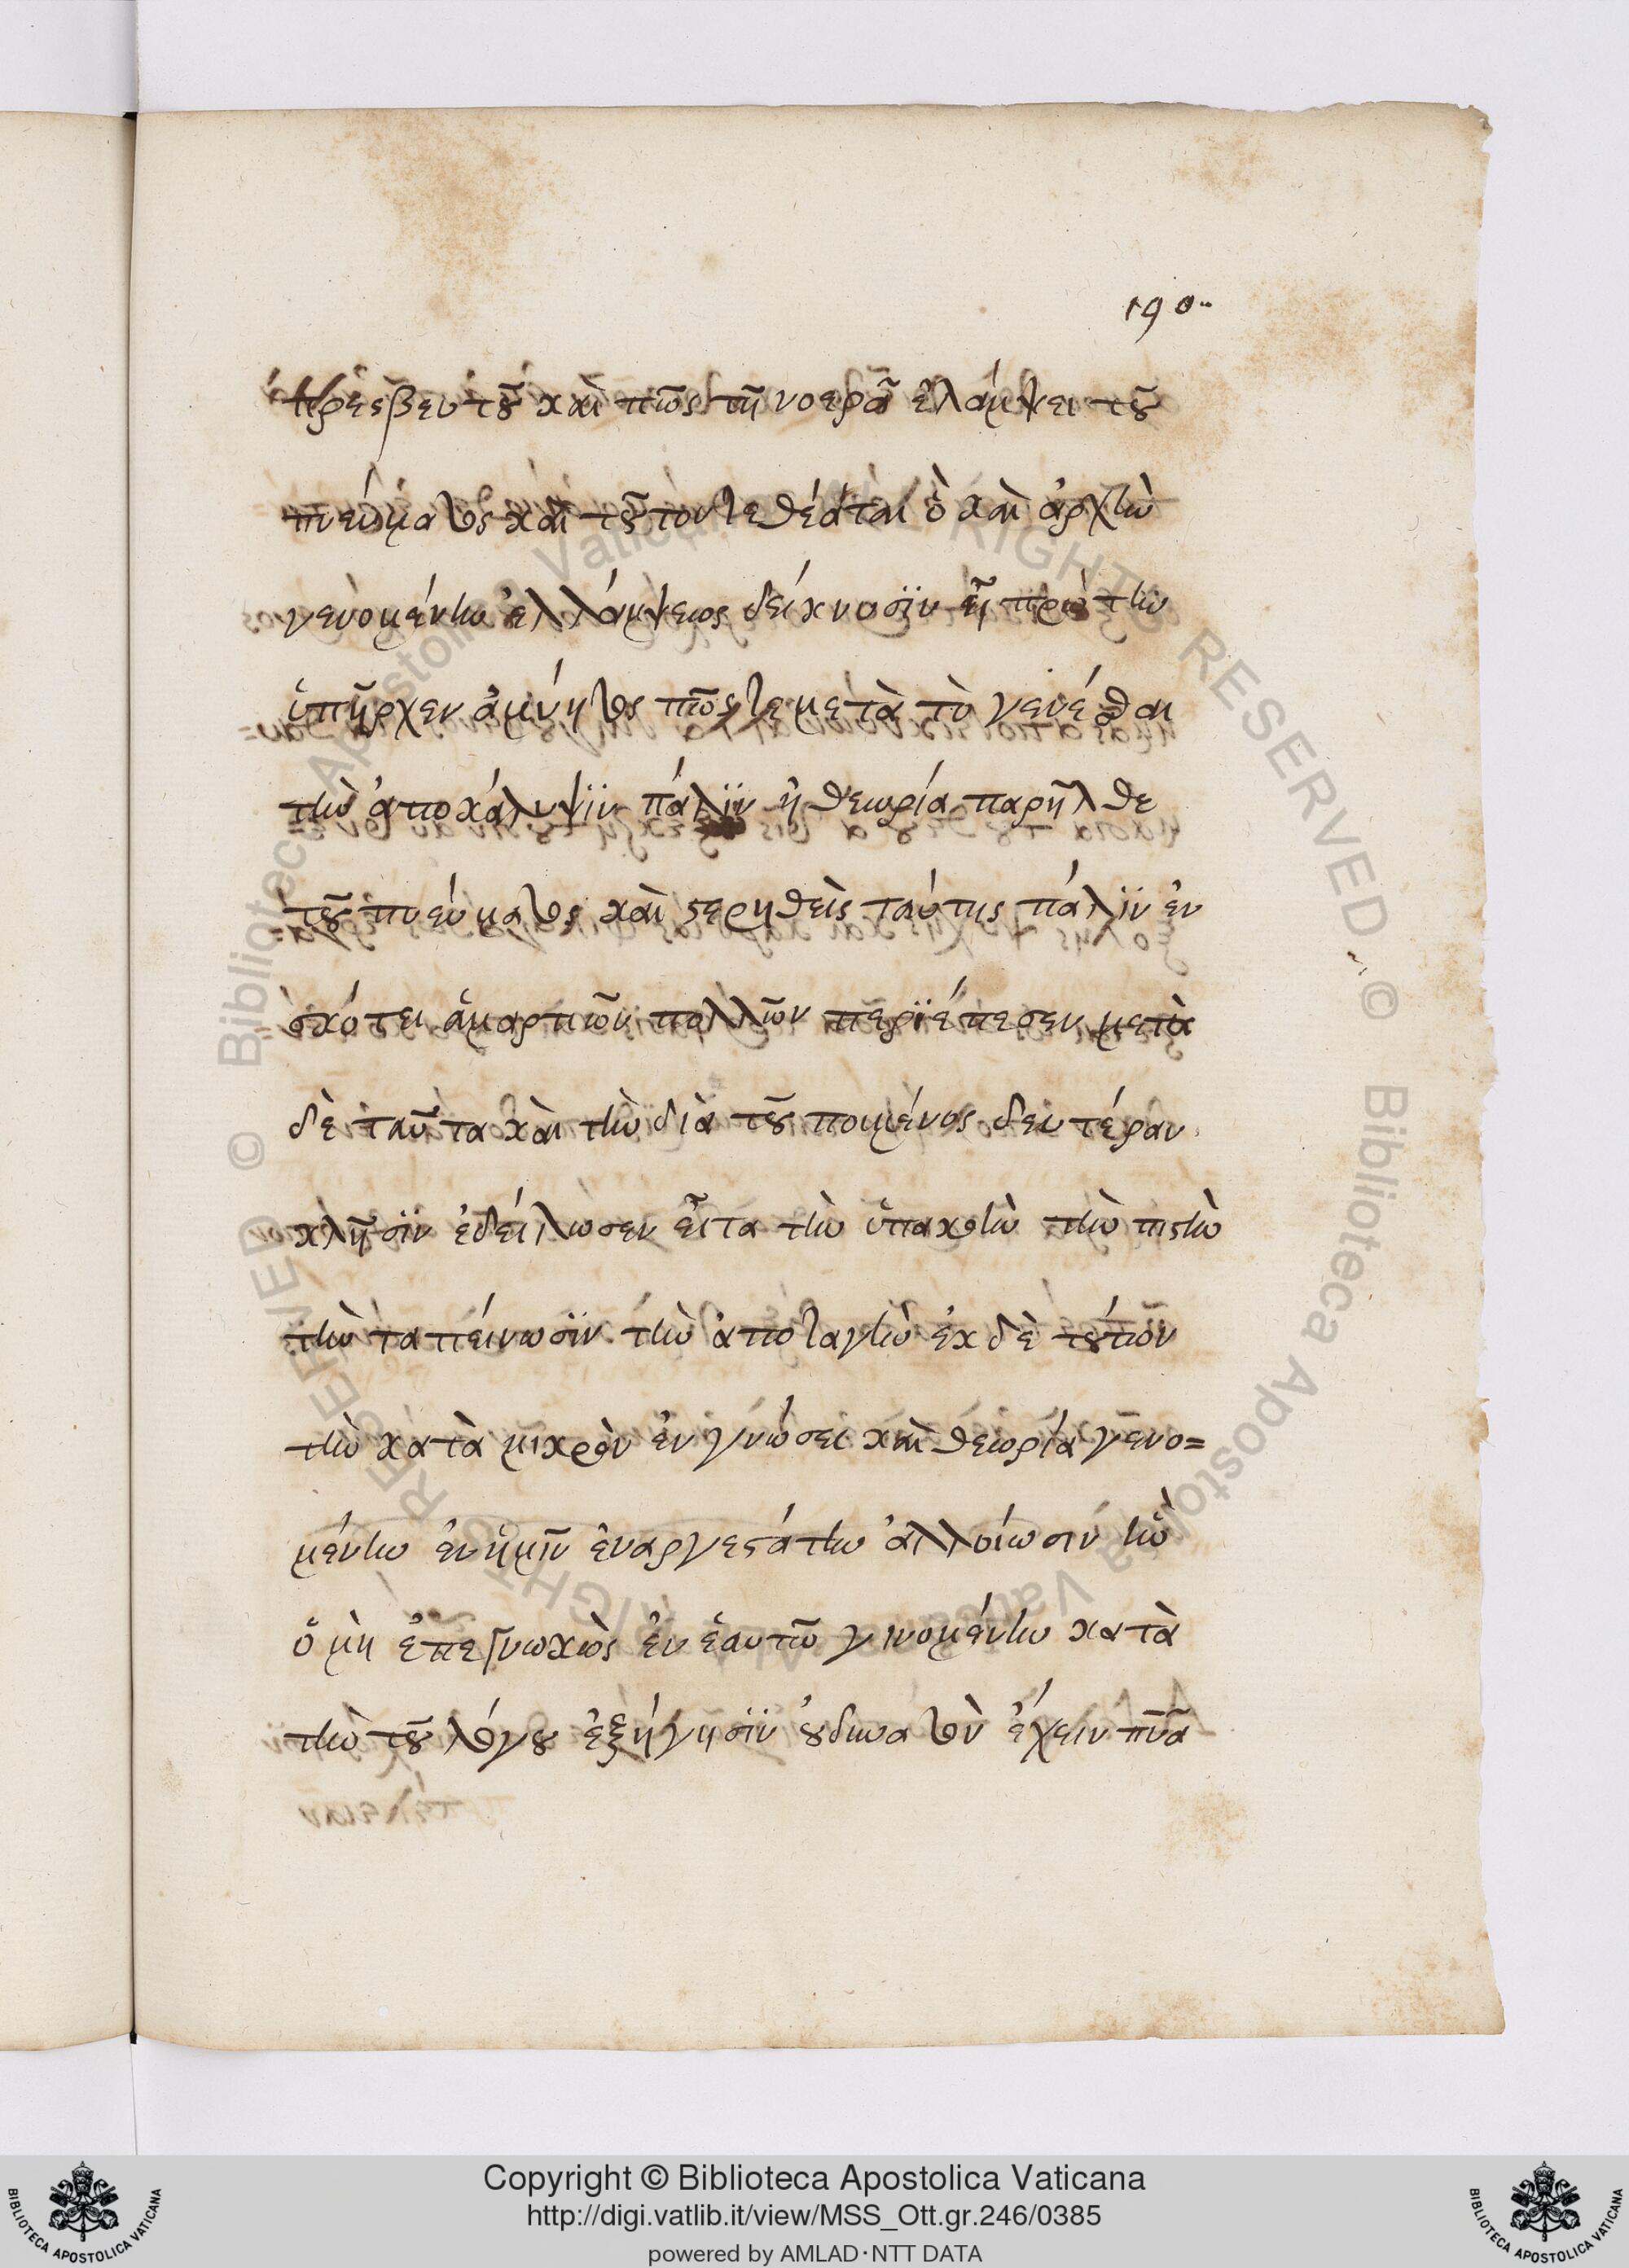 190
πρεσβευτοῦ καὶ πῶς τῆ νοερᾶ ἐλάμψει τοῦ
πνεύματος καὶ τοῦτον τεθέαται ὁ καὶ ἀρχὴν
γενομένην ἐλλάμψεως δείκνυσϊν ἧ πρὸ τὴν
ὑπῆρχεν ἀμύητος πῶς τε μετὰ τὸ γενέσθαι
τὴν ἀποκάλυψϊν πάλϊν ἡ θεωρία παρῆλθε
τοῦ πνεύματος καὶ στερηθεὶς ταύτης πάλϊν ἐν
σκότει ἁμαρτιῶν πολλῶν περϊέπεσεν μετὰ
δὲ ταῦτα καὶ τὴν διὰ τοῦ ποιμένος δευτέραν
κλῆσϊν ἐδείλωσεν εἶτα τὴν ὑπακοὴν τὴν πιστὴν
τὴν ταπείνωσϊν τὴν ἀποταγὴν ἐκ δὲ τούτων
τὴν κατὰ μικρὸν ἐν γνώσει καὶ θεωρία γενο=
μένην ἐν ἡμῖν ἐναργεστάτην ἀλλοίωσιν ἣν
ὁ μὴ ἐπεγνωκὼς ἐν ἑαυτῶ γινομένην κατὰ
τὴν τοῦ λόγου ἐξήγησϊν οὐ δυνατὸν ἔχειν πνα
Copyright © Biblioteca Apostolica Vaticana
http://digi.vatlib.it/view/MSS_Ott.gr.246/0385
powered by AMLAD·NTT DATA
BIBLIOTECA APOSTOLICA VATICANA
BIBLIOTECA APOSTOLICA VATICANA